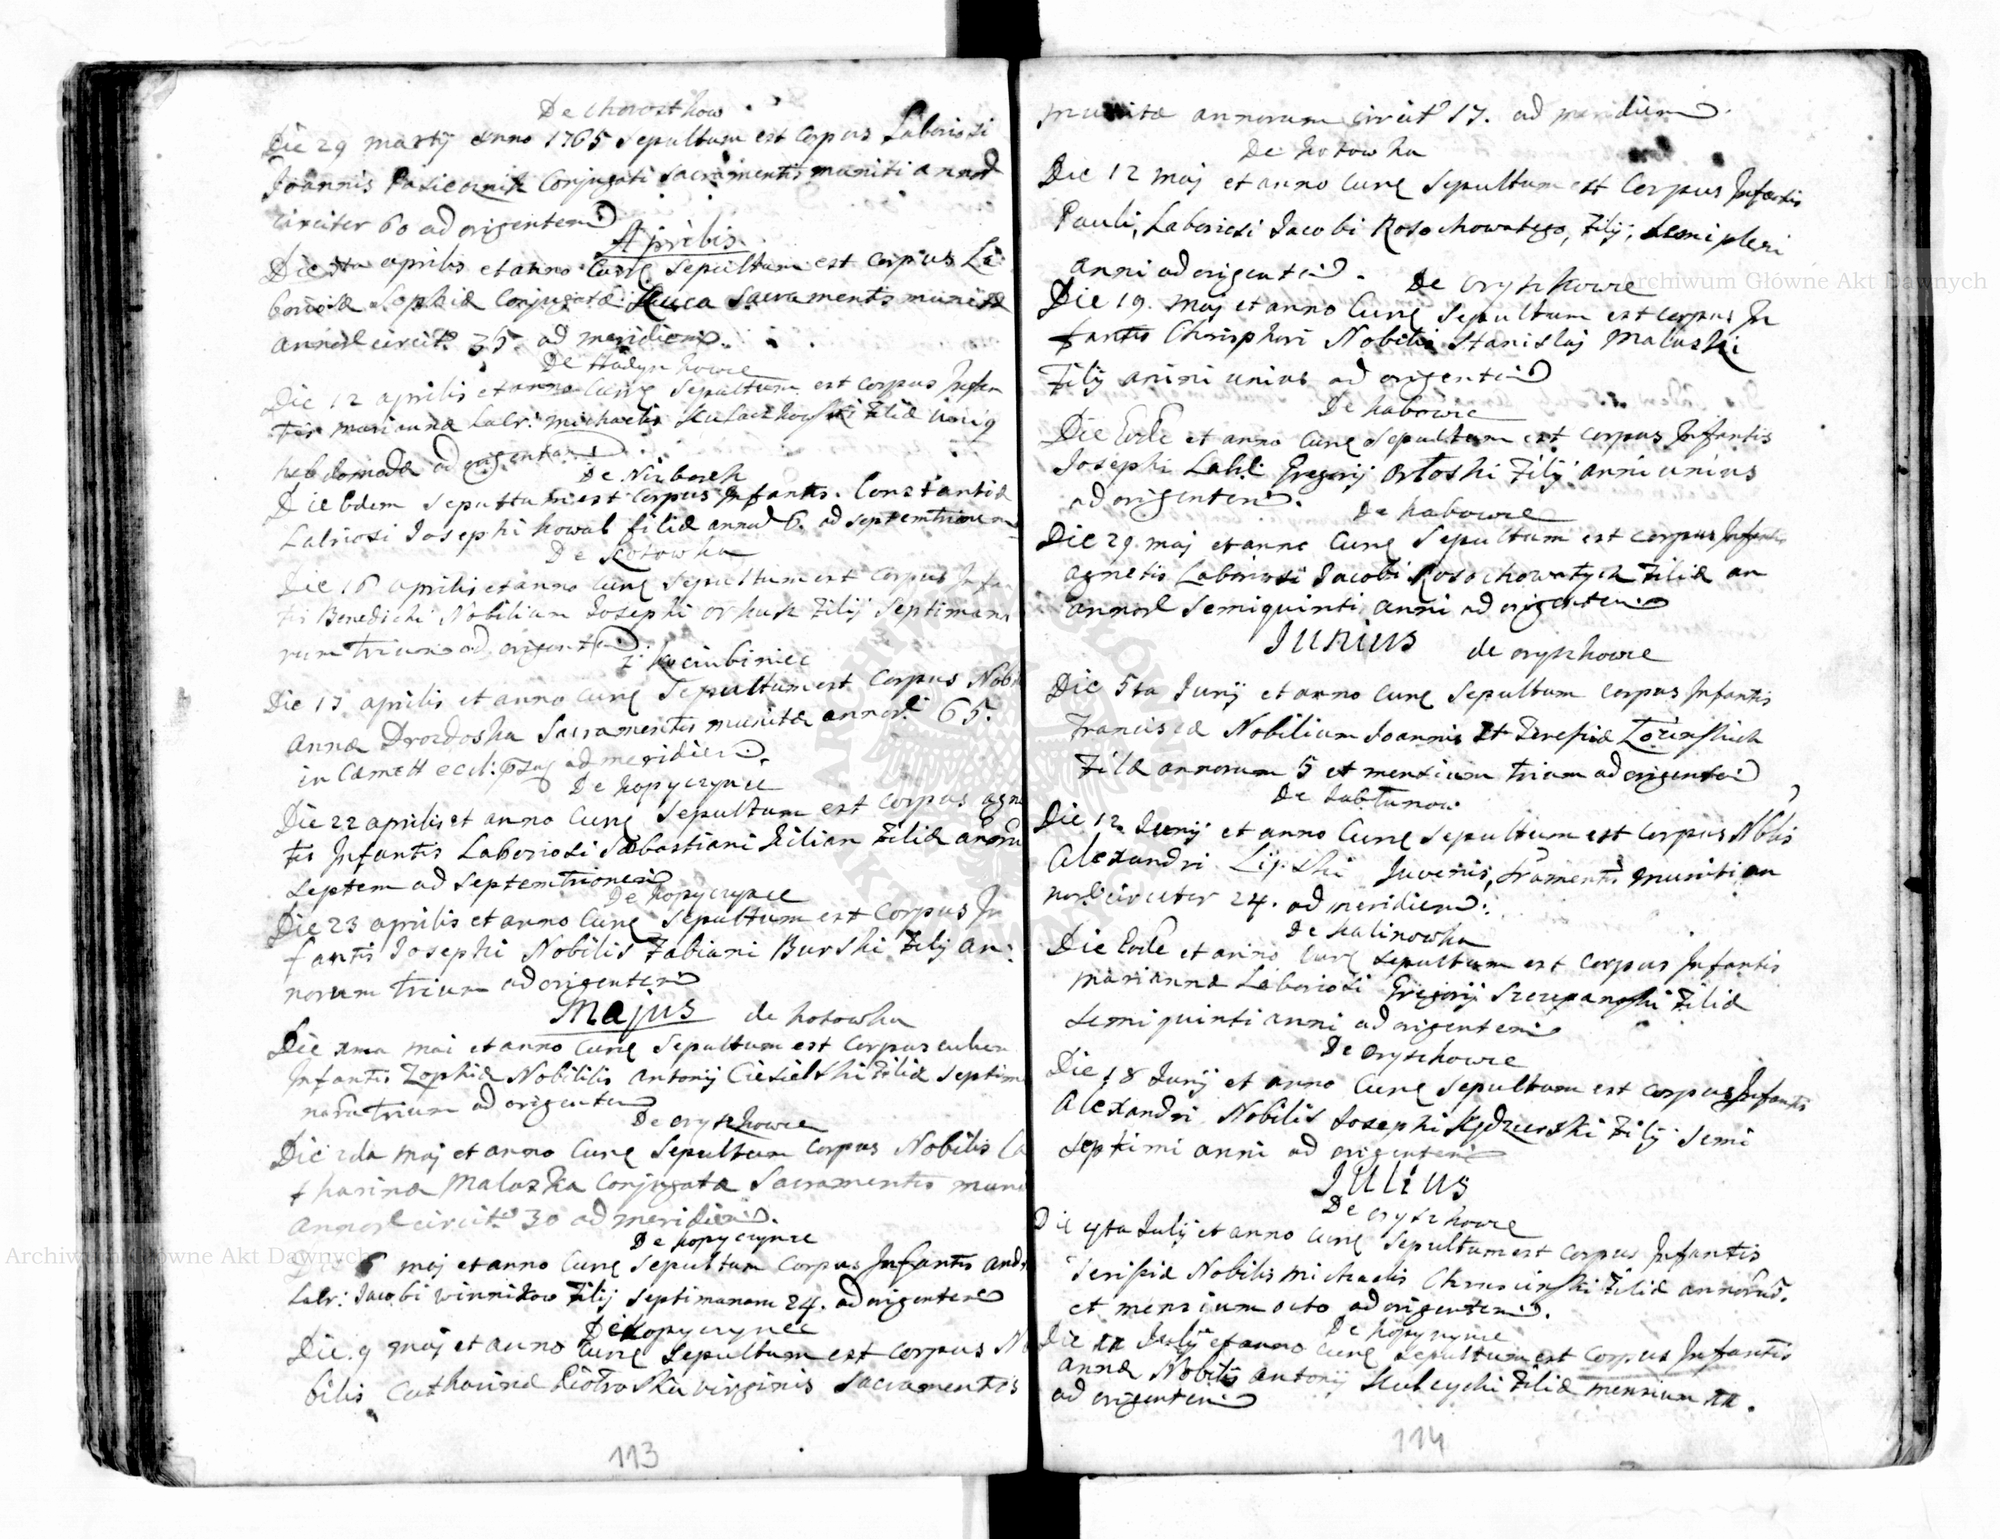 De Chorostkow
Die 29 martij anno 1765 Sepultum est Corpus Laboriosi
Joannis Pasiecznik Conjugati Sacramentis muniti annorũ
circiter 60 ad origentem
Aprilis
Die aprilis et anno Curẽ Sepultum est Corpus La
boriosæ Sophiæ Conjugatæ Sacramentis munitæ
annorũ circit: 35 ad meridiem
De Hadynkowce
Die 12 aprilis et anno Curẽ Sepultum est corpus Infan
tis mariannæ Labr: michaelis filiæ
hebdomadæ ad origentem
De Niżborek
Die Edem Sepultum est Corpus Infantis Constantiæ
Labriosi Josephi kowal filiæ annorũ 6. ad septemtrionem
De Kotowka
Die 16 aprilis et anno Curẽ Sepultum est Corpus Infan
tis Benedicti Nobilium Josephi filij Septimana
rum Trium ad origentem
z Kociubiniec
Die 17 aprilis et anno Curẽ Sepultum est Corpus Nobi
Annæ Drozdoska Sacramentis munitæ annorũ 65.
in Cæmett eccl: ad meridiem
De kopyczynce
Die 22 aprilis et anno Curẽ Sepultum est Corpus agne
tis Infantis Laboriosi Sebastiani Kilian filiæ annoru
septem ad septemtrionem
De kopyczynce
Die 23 aprilis et anno Curẽ Sepultum est Corpus In
fantis Josephi Nobilis Fabiani Burski filij an:
norum trium ad origentem
Majus de kotowka
Die maij et anno Curẽ Sepultum est Corpus
Infantis Zophiæ Nobilis Antonij Ciesielski filiæ septim
naru Trium ad origentem
De oryszkowce
Die 2da maij et anno Curẽ Sepultum Corpus Nobilis Ca
tharinæ Maluszka Conjugatæ Sacramentis muni
annorũ circit 30 ad meridiem.
De kopyczynce
6 maij et anno Curẽ Sepultum Corpus Infantis and
Labr: Jacobi winnikow filij Septimanaru 24. ad origentem
De kopyczynce
Die 9 maij et anno Curẽ Sepultum est Corpus No
bilis Catharinæ virginis Sacramentis
113
munitæ annorum circit 17. ad meridiem
De kotowka
Die 12 maij et anno Curẽ Sepultum est Corpus Infantis
Pauli, Laboriosi Jacobi Rosochowatego, filij,
anni ad origentem.
De oryszkowce
Die 19. maij et anno Curẽ Sepultum est Corpus In
fantis Nobilis Stanislaj Maluszki
filij anni unius ad origentem
De habowce
Die Eode et anno Curẽ Sepultum est corpus Infantis
Josephi Labr: Gregorij Orłoski filij anni unius
ad origentem.
De habowce
Die 29. maij et anno Curẽ Sepultum est corpus Infantis
agnetis Laboriosi Jacobi Rosochowatych filiæ an
annorũ semiquinti anni ad origentem
Junius de oryszkowce
Die 5ta Junij et anno Curẽ Sepultum corpus Infantis
Franciscæ Nobilium Joannis Et Teresiæ
filæ annorum 5 et mensium trium ad origentem
De Jabłunow
Die 12 Junij et anno Curẽ Sepultum est Corpus Nblis
Alexandri Lipski Juvenis, muniti an
norũ circiter 24. ad meridiem
De Kalinowka
Die Eode et anno Curẽ Sepultum est Corpus Infantis
mariannæ Laboriosi Gregorij Szczepanoski filiæ
semiquinti anni ad origentem
De oryszkowce
Die 18 Junij et anno Curẽ Sepultum est corpus Infantis
Alexandri Nobilis Josephi filij Semi
septimi anni ad origentem
Julius
De oryszkowce
Die 4ta Julij et anno Curẽ Sepultum est Corpus Infantis
Teresiæ Nobilis michaelis filiæ
et mensium octo ad origentem.
De kopyczynce
Die Julij et anno Curẽ Sepultum est Corpus Infantis
annæ Nobilis Antonij filiæ mensium
ad origentem
114
Archiwum Główne Akt Dawnych
Archiwum Główne Akt Dawnych